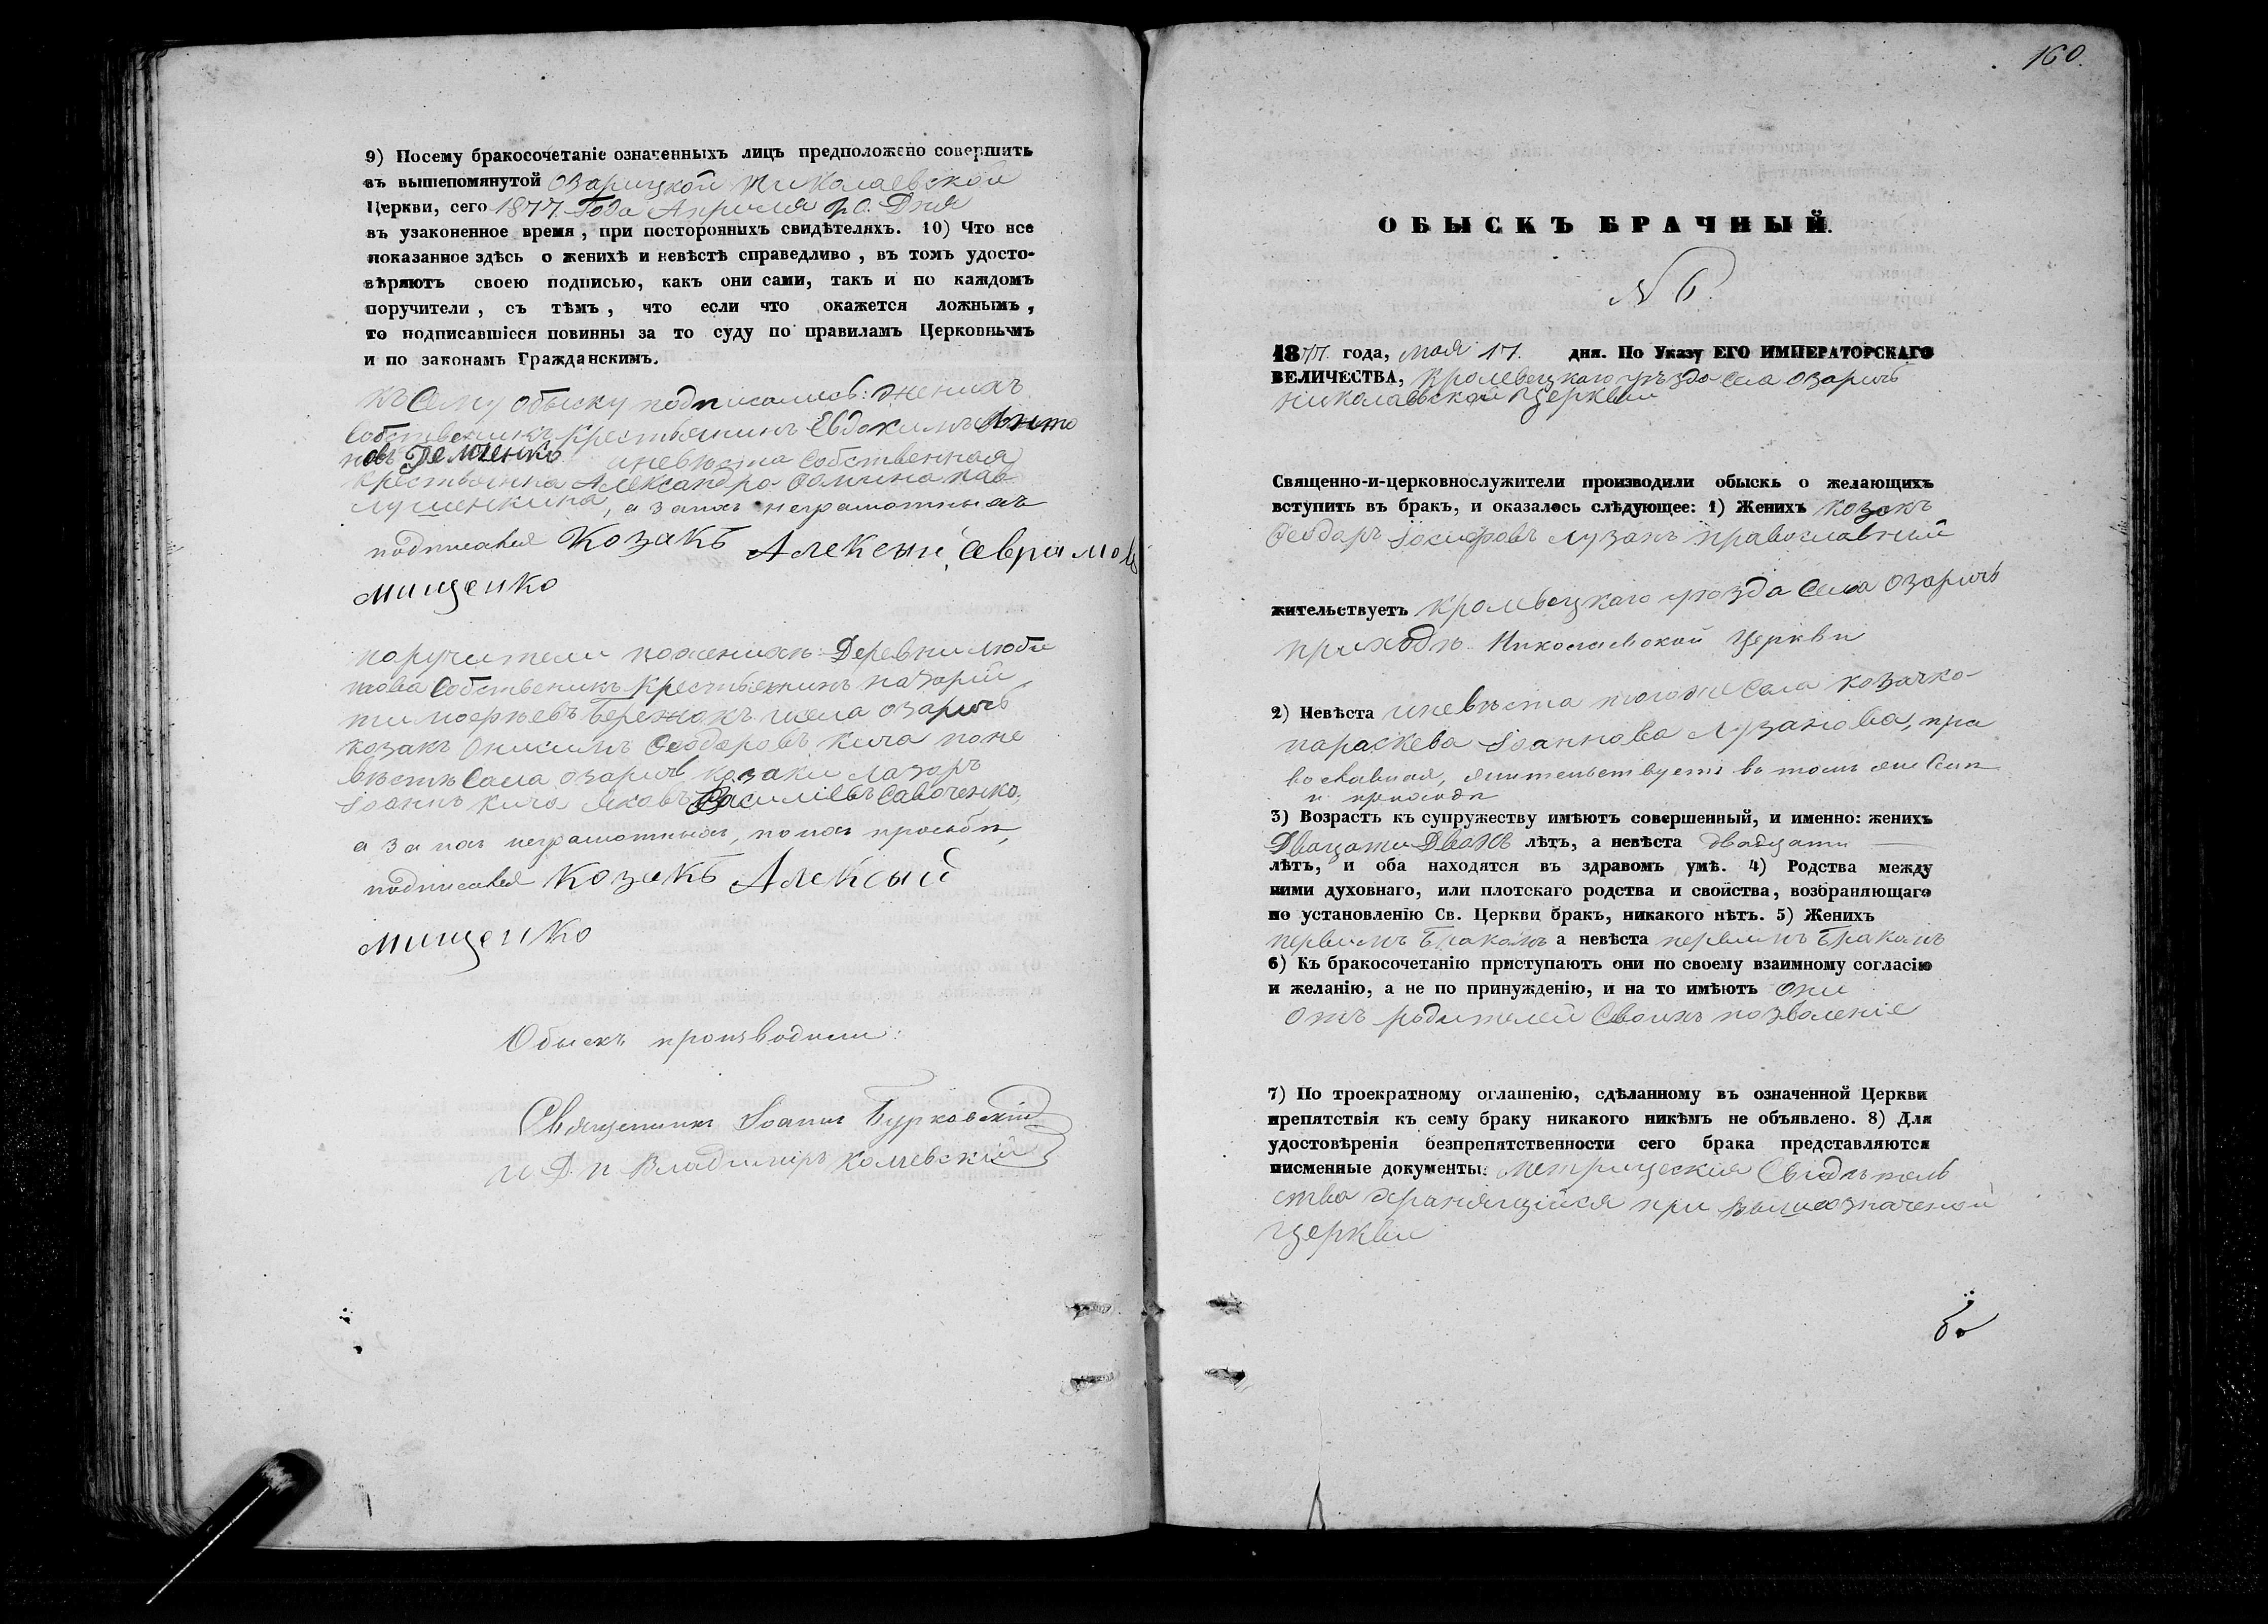 9) Посему бракосочетаніе означенныхъ лицъ предположено совершить
въ вышепомянутой Озарицкой Николаевской
Церкви, сего 1877 Года Апреля Дня
въ узаконенное время, при постороннихъ свидѣтеляхъ. 10) Что все
показанное здѣсь о женихѣ и невѣстѣ справедливо, въ томъ удосто-
вѣряютъ своею подписью, какъ они сами, такъ и по каждомъ
поручители, съ тѣмъ, что если что окажется ложнымъ,
то подписавшіеся повинны за то суду по правиламъ Церковнымъ
и по законамъ Гражданскимъ.
Къ Сему обыску подписались: женихъ
собственикъ крестьянинъ Евдокимъ Анто
новъ Демченко и невѣста собственная
крестьянка Александра Павлушенкина, а за ихъ неграмотныхъ
подписался Козакъ Алексей Аврамовъ
Мищенко
поручители по женихѣ: Деревни Люби
това Собственикъ крестьянинъ Назарій
Тимофѣевъ Бережокъ и села Озаричъ
козакъ Онисимъ Феодоровъ Кича по не
вѣстѣ Села Озаричъ козаки Лазарь
Іоаннъ Кича Яковъ Василіевъ Савоченко,
а за ихъ неграмотныхъ, по ихъ просьбѣ,
подписался Козакъ Алексый
Мищенко
Обыскъ производили:
Священникъ Іоаннъ Бурковскій
и Д. п Владимиръ
160.
ОБЫСКЪ БРАЧНЫЙ.
N 6.
1877 года, Мая 17. дня. По Указу ЕГО ИМПЕРАТОРСКАГО
ВЕЛИЧЕСТВА, Кролевецкаго уѣзда Села Озаричъ
Николаевской Церкви
Священно-и-церковнослужители производили обыскъ о желающихъ
вступить въ бракъ, и оказалось слѣдующее: 1) Женихъ Козакъ
Феодоръ Іосифовъ Лузанъ православний
жительствуетъ Кролевецкаго уѣзда Села Озаричъ
приходѣ Николаевской Церкви
2) Невѣста и невѣста тогоже Села козачка
Параскева Іоаннова Лузанова, пра
вославная, жительствуетъ въ томъ же Селѣ
и приходѣ
3) Возрастъ къ супружеству имѣютъ совершенный, и именно: женихъ
Двацати Двохъ лѣтъ, а невѣста двадцати
лѣтъ, и оба находятся въ здравомъ умѣ. 4) Родства между
ними духовнаго, или плотскаго родства и свойства, возбраняющаго
по установленію Св. Церкви бракъ, никакого нѣтъ. 5) Женихъ
первимъ Бракомъ а невѣста первимъ Бракомъ
6) Къ бракосочетанію приступаютъ они по своему взаимному согласію
и желанію, а не по принужденію, и на то имѣютъ они
отъ родителей Своихъ позволеніе
7) По троекратному оглашенію, сдѣланному въ означенной Церкви
препятствія къ сему браку никакого никѣмъ не объявлено. 8) Для
удостовѣренія безпрепятственности сего брака представляются
писменные документы: Метрическія Свидѣтель
ства при вышеозначеной
Церкви